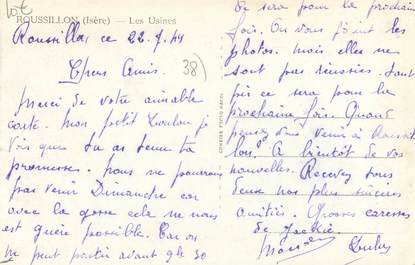 10€
ROUSSILLON (Isère) — Les Usines
Roussillon ce 22.7.44
Chers Amis.
38)
Merci de votre aimable
carte. Mon petit Loulou je
vois que tu as tenu ta
promesse. Nous ne pourrons
pas venir Dimanche car
avec la gosse cela ne nous
est guère possible. Car on
ne peut partir avant 9h 30
Ce sera pour la prochaine
fois. On vous joint les
photos. mais elles ne
sont pas réussies. Tant
pis ce sera pour la
prochaine fois. Quand
pensez vous venir à Roussil
lon. A bientôt de vos
nouvelles. Recevez tous
deux nos plus sincères
amitiés. Grosses caresses
de Jackie.